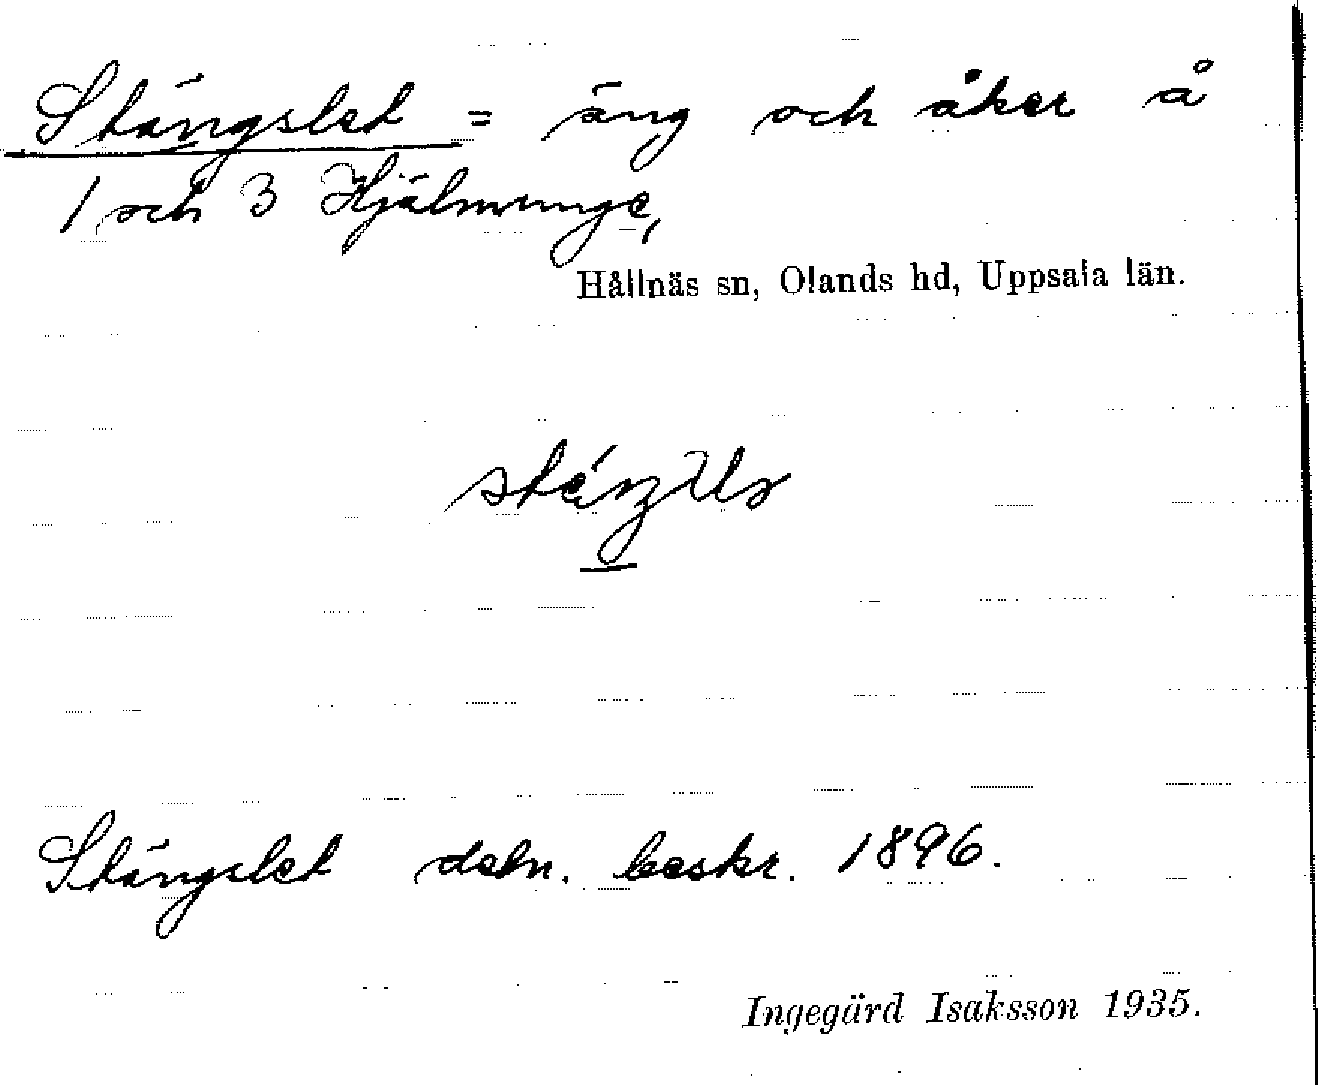 Stängslet = äng och åker å
1 och 3 Hjälmunge,
Hållnäs sn, Olands hd, Uppsala län.
Stängslet deln. beskr. 1896.
Ingegärd Isaksson 1935.